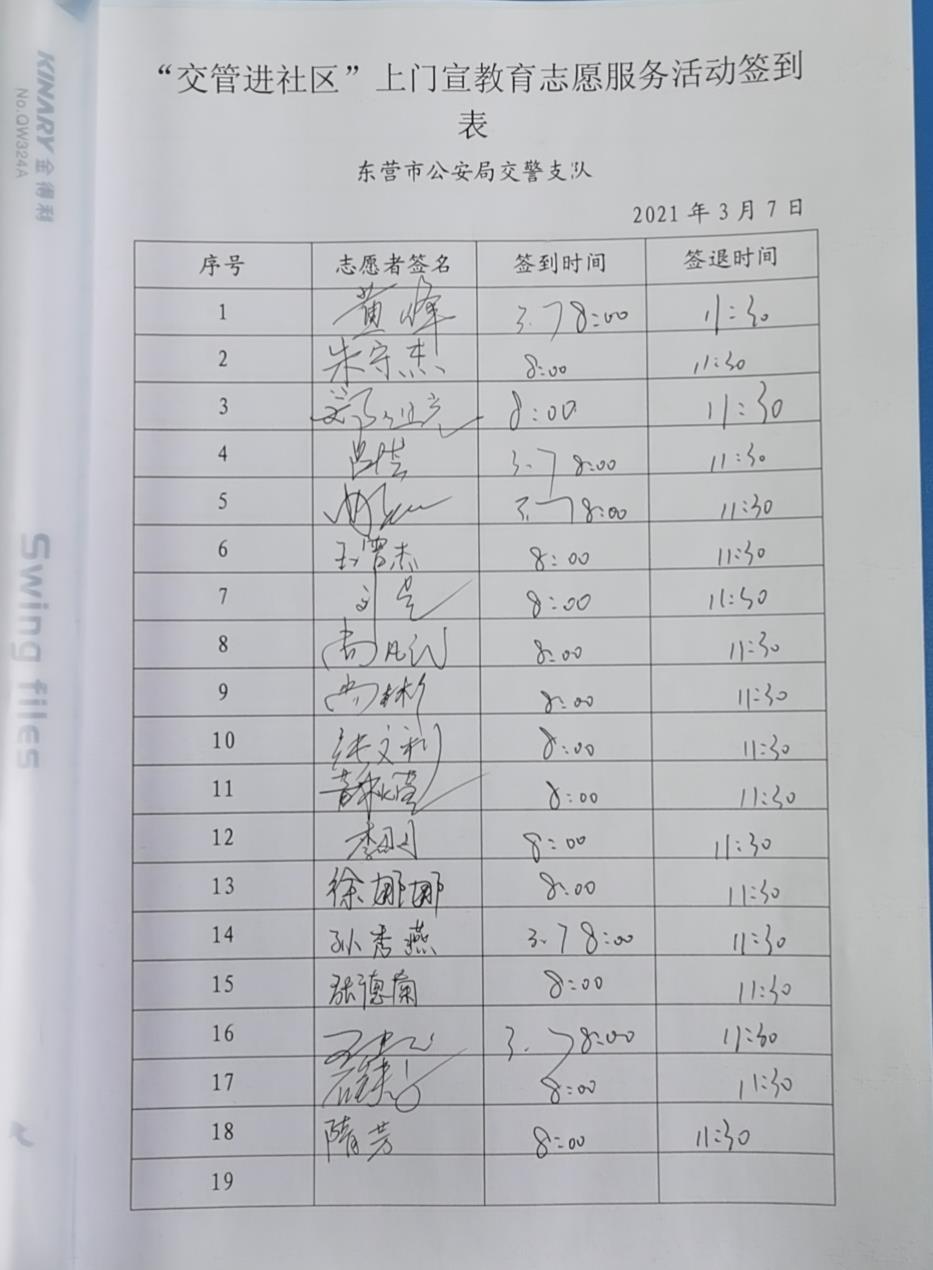 KINARY 金得利
No.QW324A
Swing files
“交管进社区”上门宣教育志愿服务活动签到
表
东营市公安局交警支队
2021 年 3 月 7 日
序号 志愿者签名 签到时间 签退时间
1 黄峰 3.7 8:00 11:30
2 朱守杰 8:00 11:30
3 8:00 11:30
4 3.7 8:00 11:30
5 3.7 8:00 11:30
6 8:00 11:30
7 8:00 11:30
8 8:00 11:30
9 尚彬 8:00 11:30
10 张文利 8:00 11:30
11 8:00 11:30
12 8:00 11:30
13 徐娜娜 8:00 11:30
14 孙秀燕 3.7 8:00 11:30
15 张德兰 8:00 11:30
16 3.7 8:00 11:30
17 8:00 11:30
18 隋芳 8:00 11:30
19